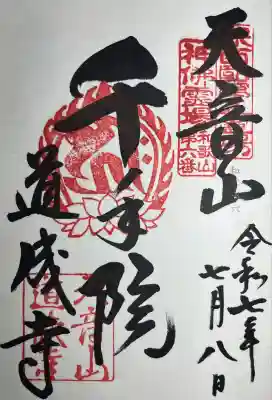 天音山
千手院
道成寺
令和七年
七月八日
神佛霊場
和歌山
第六番
天音山
道成寺